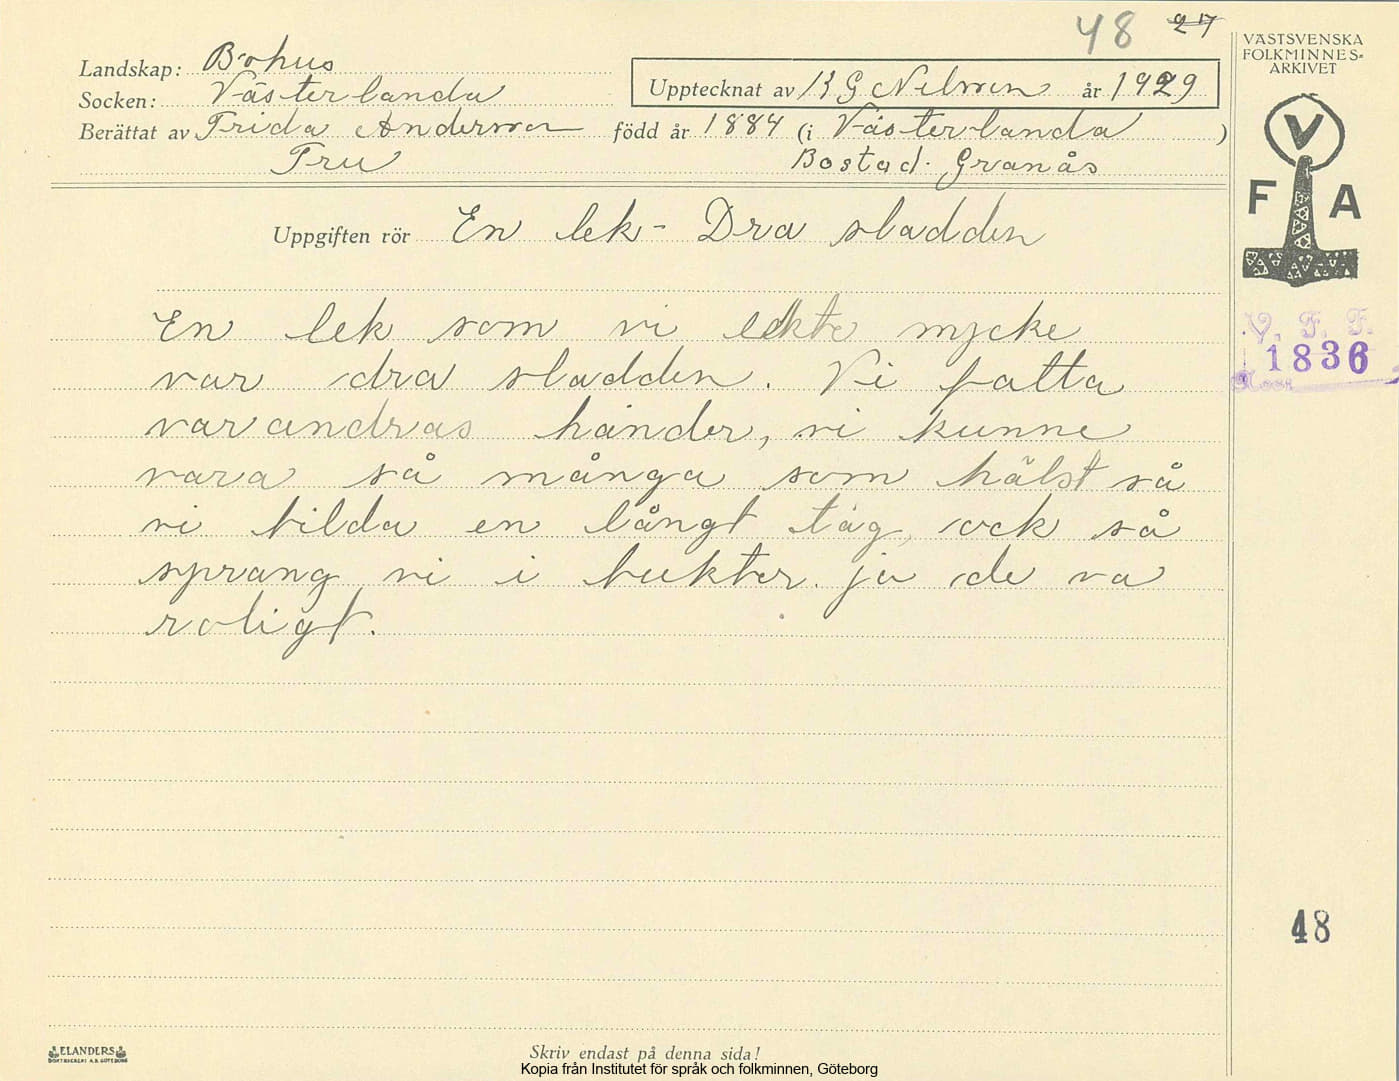 48 27
VÄSTSVENSKA
FOLKMINNES=
ARKIVET
Landskap: Bohus
Socken: Västerlanda
Upptecknat av K G Nilsson år 1929
Berättat av Frida Anderson född år 1884 (i Västerlanda )
Fru Bostad. Granås
V
F A
Uppgiften rör En lek - Dra sladden
En lek som vi lekte mycke
var dra sladden. Vi fatta
varandras händer, vi kunne
vara så många som hälst så
vi bilda en långt tåg, ock så
sprang vi i bukter. ja de va
roligt.
V. F. F.
1836
48
ELANDERS
BOKTRYCKERI A.B. GÖTEBORG
Skriv endast på denna sida!
Kopia från Institutet för språk och folkminnen, Göteborg